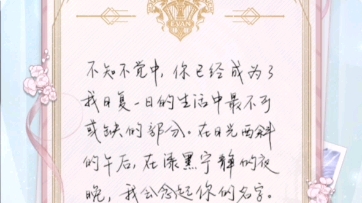 不知不觉中，你已经成为了
我日复一日的生活中最不可
或缺的部分。在日光西斜
的午后，在漆黑宁静的夜
晚，我会念起你的名字。